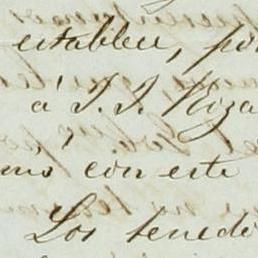 establece, por
á J. J. Niza
mó con este
Los tenedo